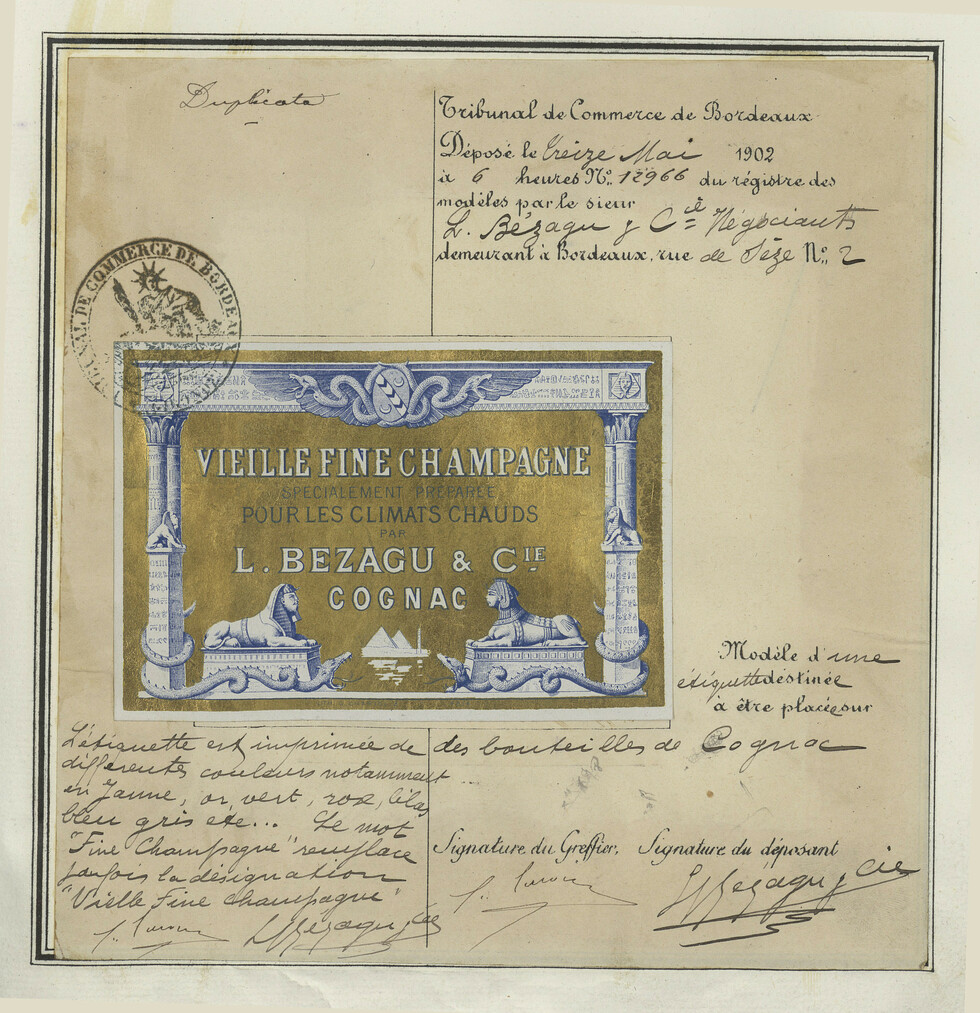 Duplicata
Tribunal de Commerce de Bordeaux
Déposé le treize Mai 1902
à 6 heures No. 12966 du régistre des
modèles par le sieur
L. Bézagu & Cie Négociants
demeurant à Bordeaux, rue de Sèze No. 2
TRIBUNAL DE COMMERCE DE BORDEAUX
VIEILLE FINE CHAMPAGNE
SPÉCIALEMENT PRÉPARÉE
POUR LES CLIMATS CHAUDS
PAR
L. BEZAGU & CIE
COGNAC
Modèle d'une
étiquette destinée
à être placée sur
des bouteilles de Cognac
L'étiquette est imprimée de
différentes couleurs notamment
en Jaune, or, vert, rose, lilas
bleu gris etc... Le mot
"Fine Champagne" remplace
parfois la désignation
"Vielle Fine champagne"
LBezagu & cie
Signature du Greffier, Signature du déposant
LBezagu & cie